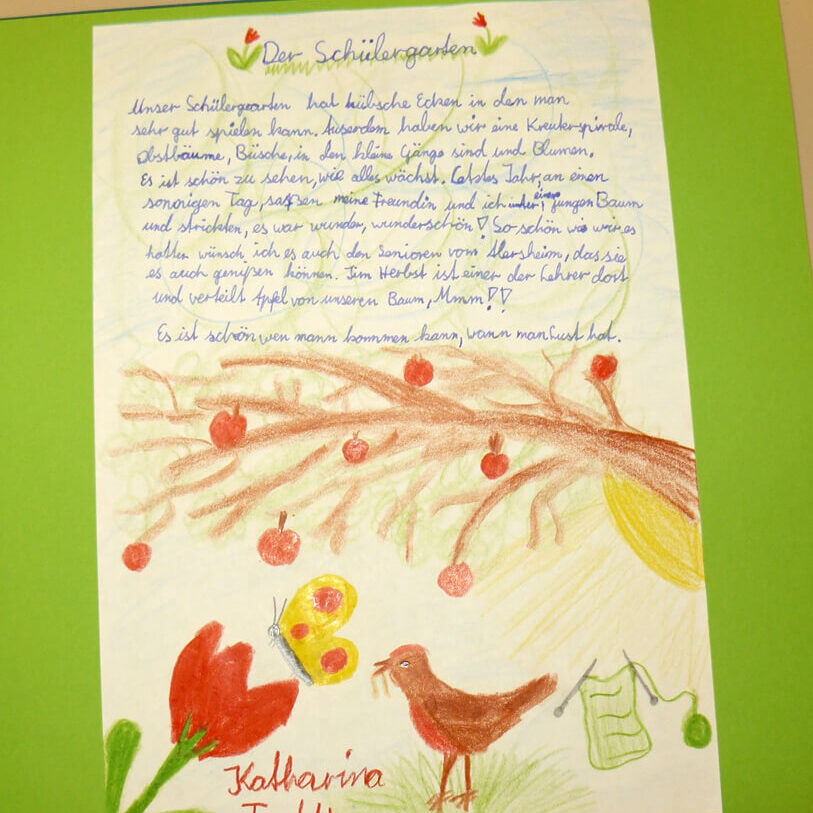 Der Schülergarten
Unser Schülergarten hat hübsche Ecken in den man
sehr gut spielen kann. Auserden haben wir eine Kreuterspirale,
Obstbäume, Büsche, in den kleine Gänge sind und Blumen.
Es ist schön zu sehen, wie alles wächst. Letztes Jahr, an einen
sonnigen Tag, saßsen meine Freundin und ich unter einen jungen Baum
und strickten, es war wunder, wunderschön! So schön wie wir es
hatten wünsch ich es auch den Senioren vom Alersheim, das sie
es auch genißen können. Jim Herbst ist einer der Lehrer dort
und verteilt Äpfel von unseren Baum, Mmm!!
Es ist schön wen mann kommen kann, wann man Lust hat.
Katharina